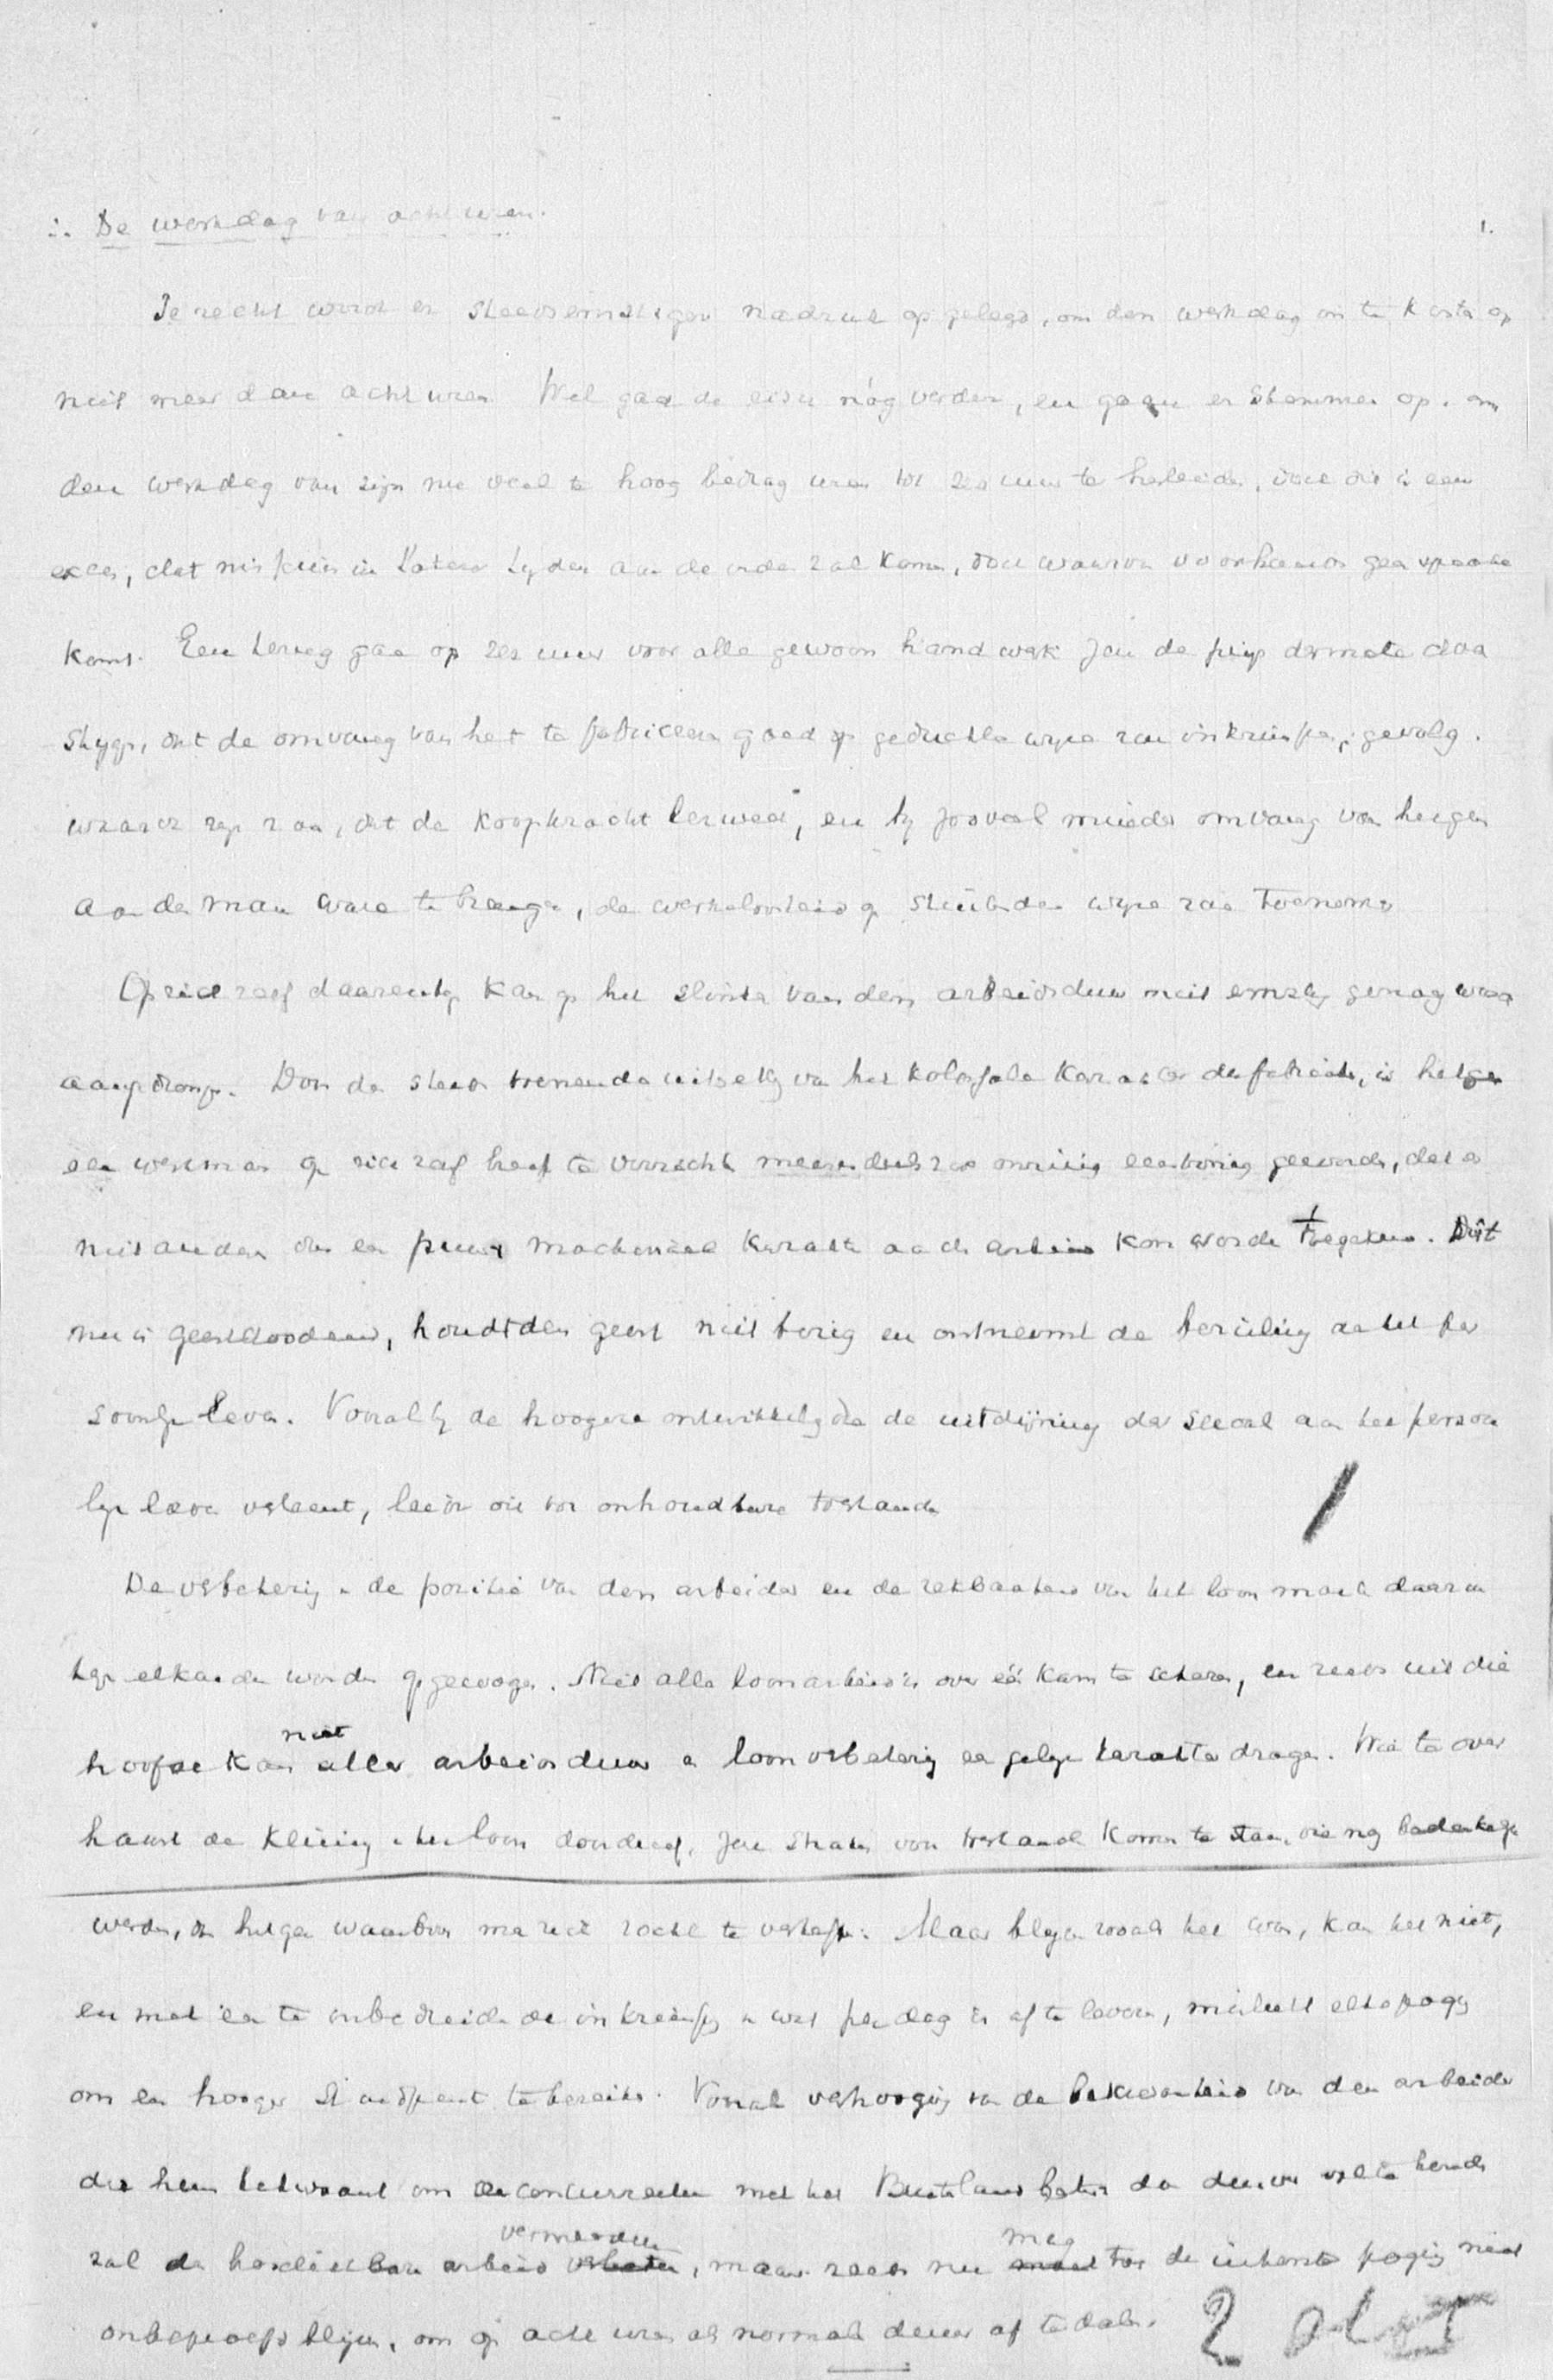 ∴ De werkdag van acht uren. 1.
Te recht wordt er steeds ernstiger nadruk op gelegd, om den werkdag in te korten op
niet meer dan acht uren Wel gaan de nóg verder, en gaan er stemmen op. om
den werkdag van zijn nu veel te hoog bedrag uren tot zes uur te herleiden, doch dit is een
exces, dat misschien in latere tijden aan de orde zal komen, doch waarvan voorhands geen sprake
komt. Een terug gaan op zes uur voor alle gewoon handwerk zou de prijs dermate doen
stijgen, dat de omvang van het te fabriceeren goed op geduchte wijze zou inkrimpen, gevolg.
waarvan zijn zou, dat de koopkracht , en bij zooveel minder omvang van hetgeen
aan den man ware te brengen, de werkeloosheid op wijze zou toenemen
Op zich zelf daarentegen kan op het van den arbeidsduur niet ernstig genoeg worden
aangedrongen. Door de steeds toenemende van het kolossale karakter der fabrieken, is hetgeen
een werkman op zich zelf heeft te verrichten meerendeels zoo eentonig geworden, dat er
niet anders dan een puur machinaal karakter aan de arbeid kon worden toegekend. Dit
nu is geestdoodend, houdt den geest niet bezig en ontneemt de bezieling aan het per
soonlijk leven. Vooral bij de hoogere ontwikkeling die de uitdijning der school aan het persoon
lijk leven verleent, leidt dit tot onhoudbare toestanden
De verbetering in de positie van den arbeider en de rekbaarheid van het loon moeten daarom
tegen elkander worden opgewogen. Niet alle loonarbeid is over één kam te scheren, en reeds uit dien
hoofde kan niet aller arbeidsduur en loonsverbetering een gelijk karakter dragen. Wie te over
haast de klimming in het loon doordreef, zou straks voor toestanden komen te staan, die nog bedenkelijker
werden, dan hetgeen waarboven men zich zocht te verheffen. Maar blijven zooals het was, kan het niet,
en met een te onbedreigde inkrimping in wat per dag is af te leveren, mislukt elke poging
om een hooger standpunt te bereiken. Vooral verhooging van de bekwaamheid van den arbeider
die hem bekwaamt om de concurrentie met het Buitenland beter dan dusver vol te houden
zal de arbeid vermeerderen, maar reeds nu mag toch de uiterste poging niet
onbeproefd blijven, om op acht uren als normale duur af te dalen.